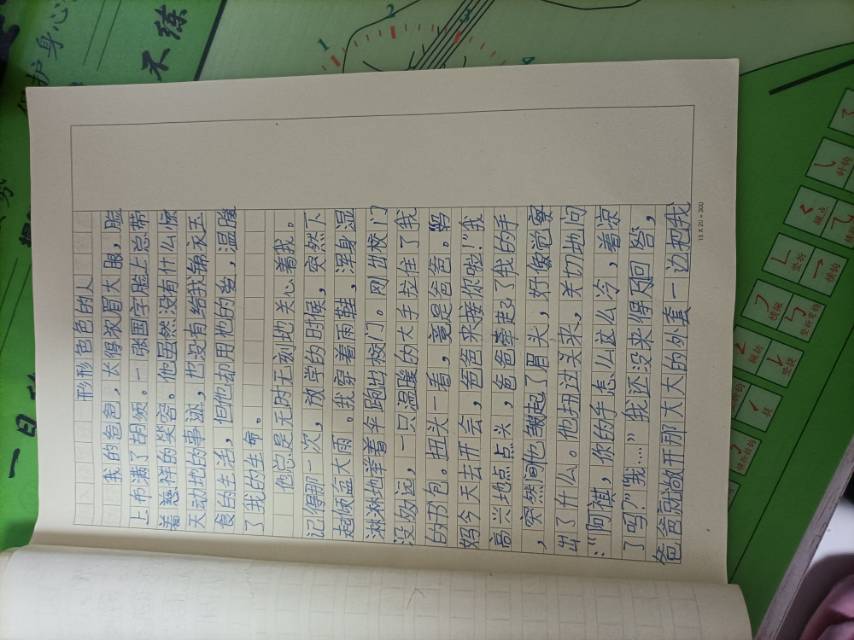 形形色色的人
我的爸爸，长得浓眉大眼，脸
上布满了胡须。一张国字脸上总带
着慈祥的笑容。他虽然没有什么惊
天动地的事迹，也没有给我锦衣玉
食的生活，但他却用他的爱，温暖
了我的生命。
他总是无时无刻地关心着我。
记得那一次，放学的时候，突然下
起倾盆大雨。我穿着雨鞋，浑身湿
淋淋地举着伞跑出校门。刚出校门
没多远，一只温暖的大手拉住了我
的书包。扭头一看，竟是爸爸。“妈
妈今天去开会，爸爸来接你啦！”我
高兴地点点头，爸爸牵起了我的手
，突然间他皱起了眉头，好像觉察
出了什么。他扭过头来，关切地问
：“阿祺，你的手怎么这么冷，着凉
了吗？”“我……”我还没来得及回答，
爸爸就敞开那大大的外套一边把我
15 X 20 = 300
护身心
不练
一日
1
2
3
4